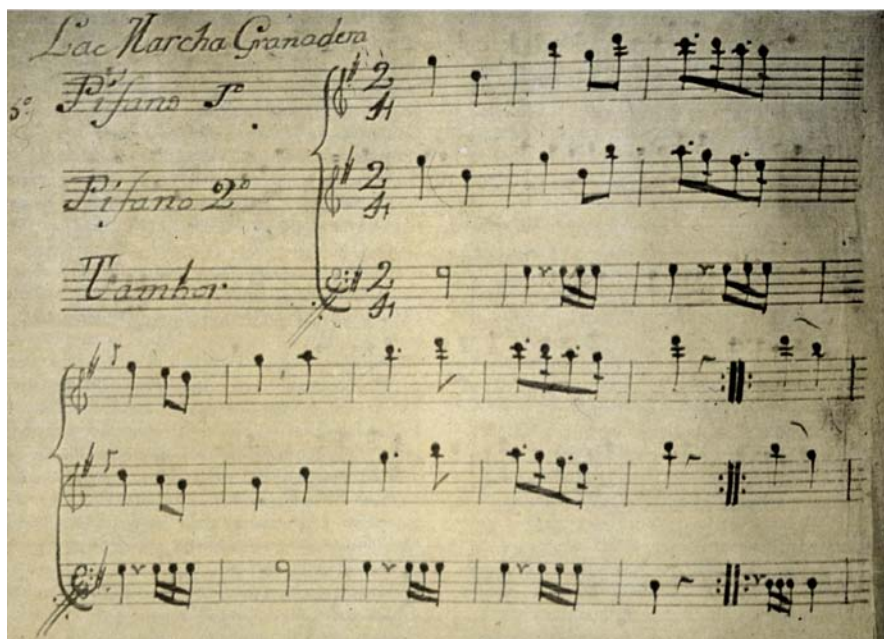 Lac Marcha Granadera
Pifano 1º
2
4
Pifano 2º
2
4
Tambor.
2
4